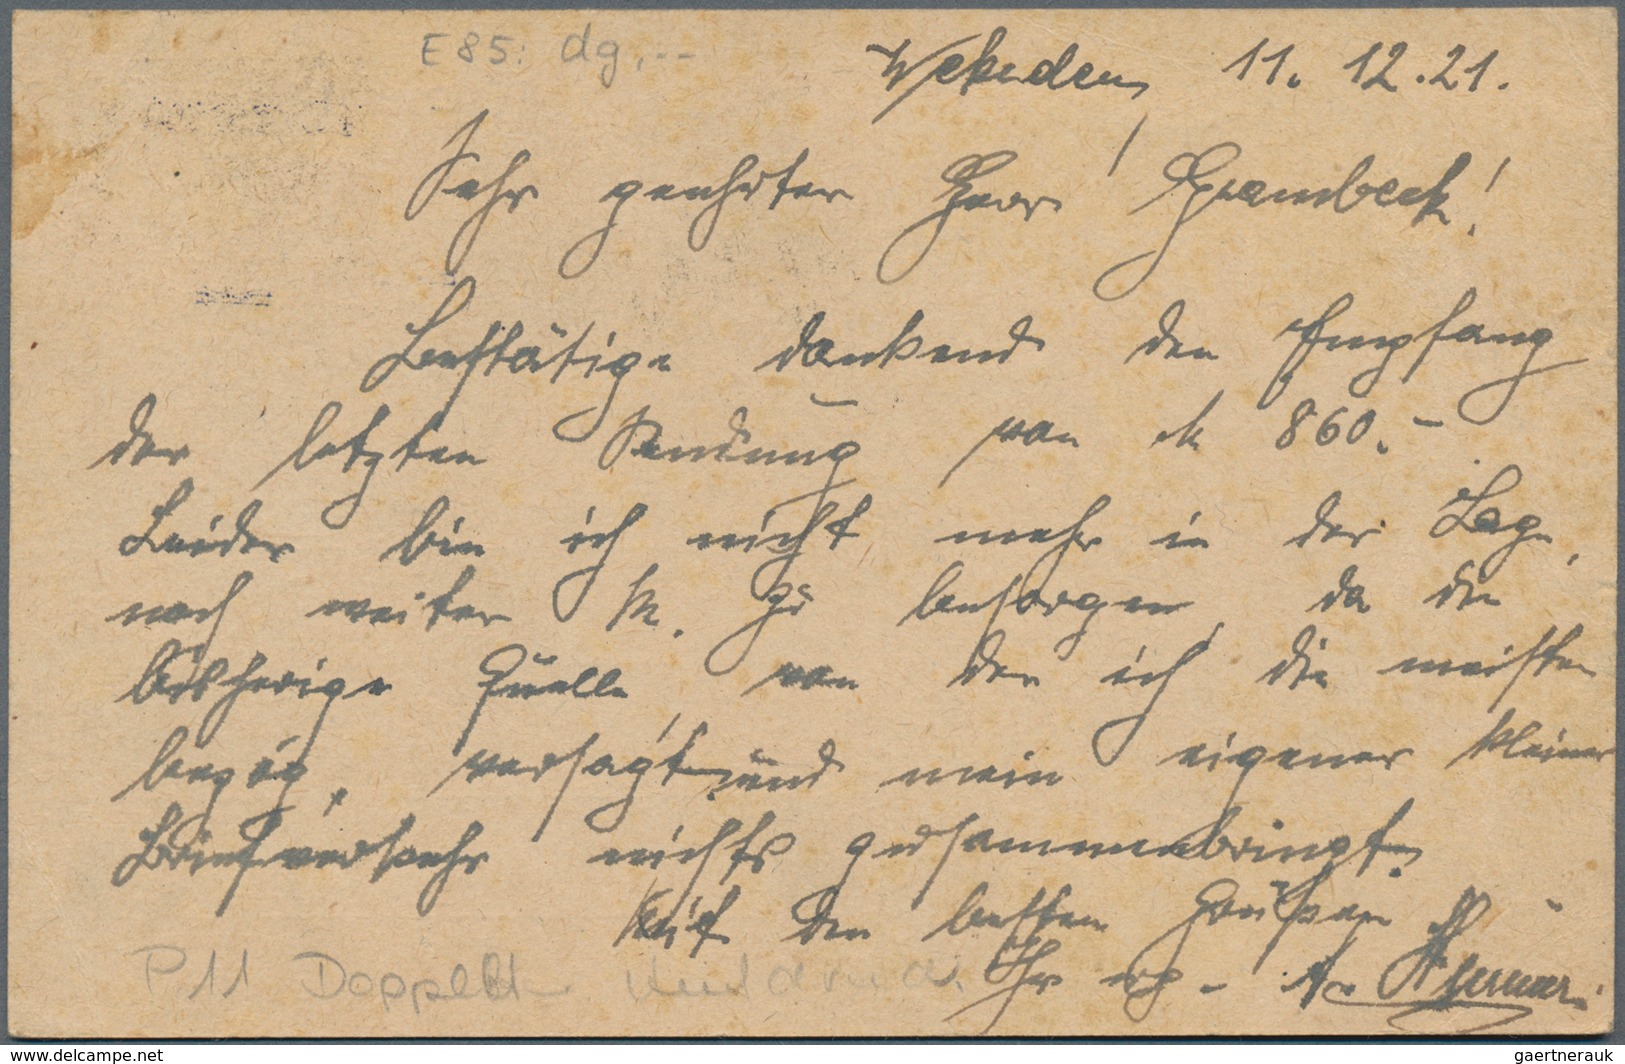 E85: dg,--
11. 12. 21.
Sehr geehrter Herr Grambeck!
Bestätige dankend den Empfang
der letzten Sendung von M 860.-
Leider bin ich nicht mehr in der Lage,
noch weiter M. zu besorgen, da die
bisherige Quelle, von der ich die meisten
bezog, versagt und mein eigener kleiner
Briefverkehr nichts zusammenbringt.
Mit den besten Grüßen
Ihr erg.
P11
www.delcampe.net
gaertnerauk